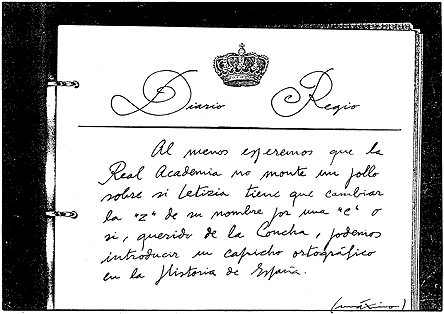 Diario Regio
Al menos esperemos que la
Real Academia no monte un pollo
sobre si Letizia tiene que cambiar
la "z" de su nombre por una "c" o
si, querido de la Concha, podemos
introducir un capicho ortográfico
en la Historia de España.
(máximo)